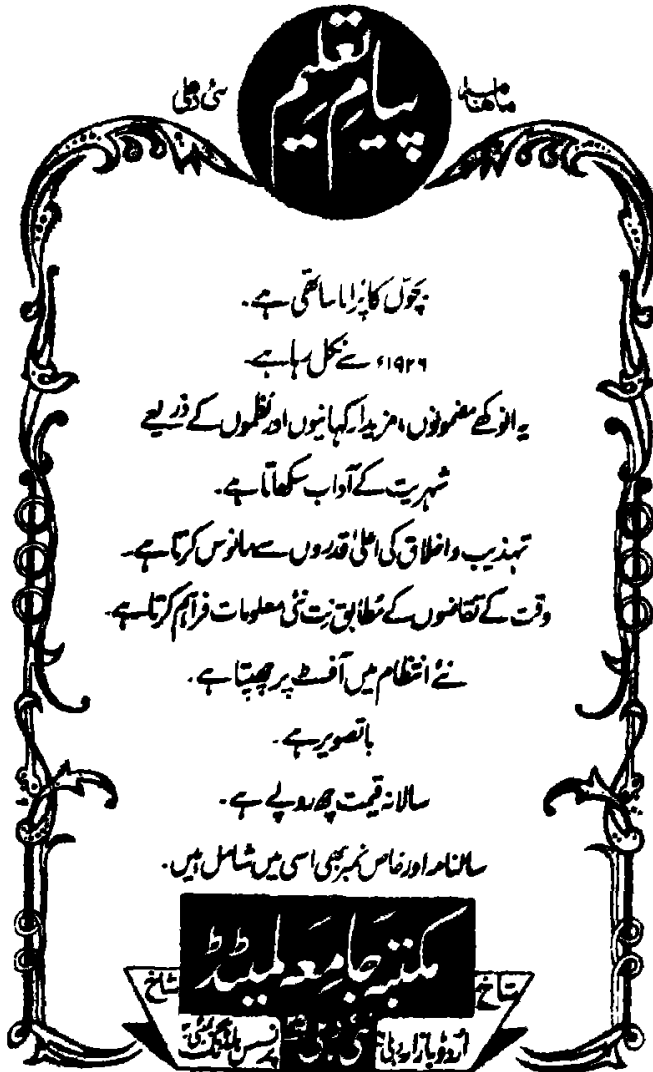 ماہنامہ پیامِ تعلیم نئی دہلی
بچّوں کا پُرانا ساتھی ہے۔
۱۹۲۶ء سے نکل رہا ہے۔
یہ انوکھے مضمونوں، مزیدار کہانیوں اور نظموں کے ذریعے
شہریت کے آداب سکھاتا ہے۔
تہذیب و اخلاق کی اعلیٰ قدروں سے مانوس کرتا ہے۔
وقت کے تقاضوں کے مُطابق نِت نئی معلومات فراہم کرتا ہے۔
نئے انتظام میں آفسٹ پر چھپتا ہے۔
باتصویر ہے۔
سالانہ قیمت چھ روپے ہے۔
سالنامہ اور خاص نمبر بھی اسی میں شامل ہیں۔
مکتبہ جامِعَہ لمیٹڈ
شاخ شاخ
اُردو بازار دہلی نئی دہلی پرنسس بلڈنگ بمبئی